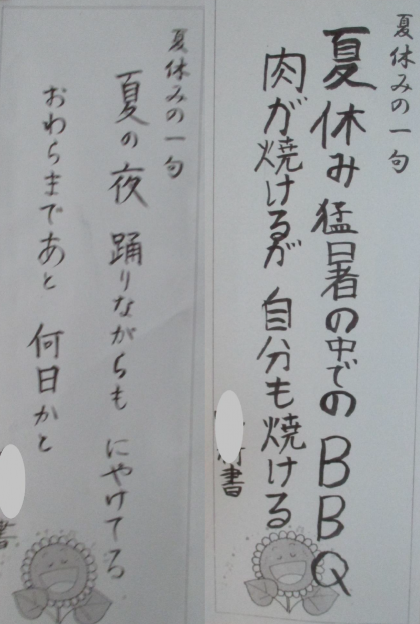 夏休みの一句
夏休み猛暑の中でのBBQ
肉が焼けるが 自分も焼ける
書
夏休みの一句
夏の夜 踊りながらも にやけてる
おわらまであと 何日かと
書